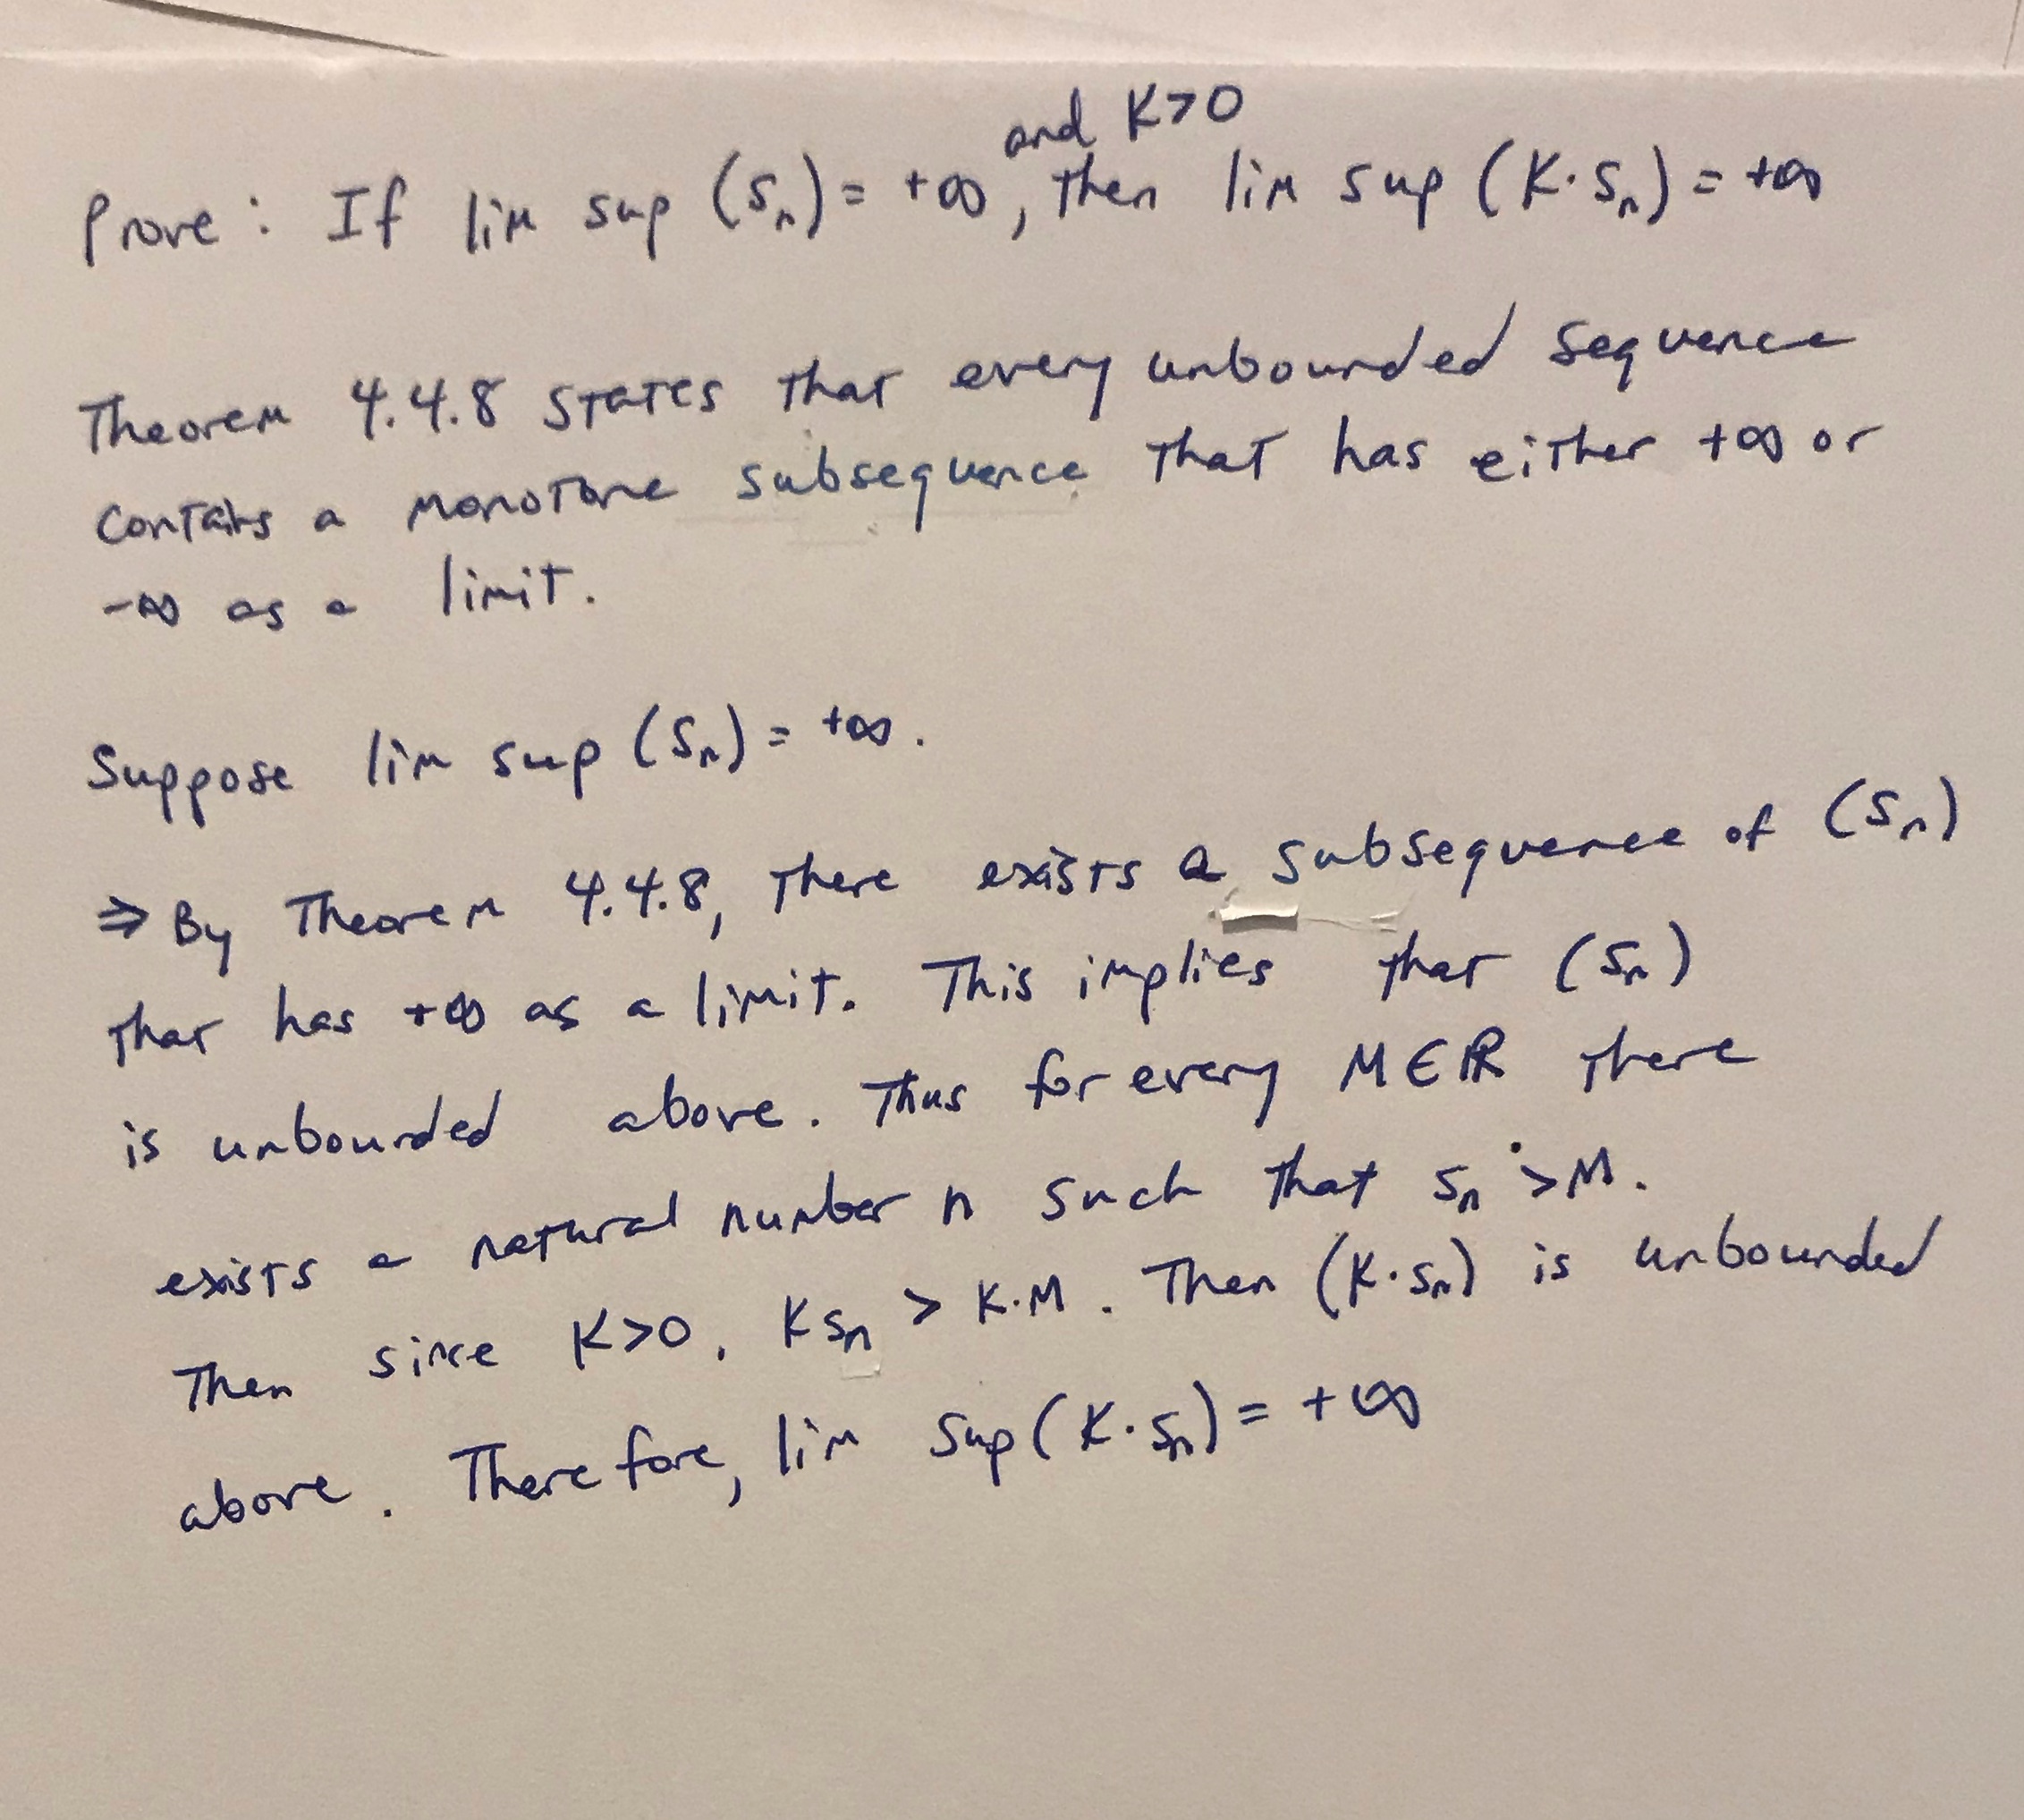 and K>0
Prove: If lim sup (Sn) = +∞, then lim sup (K·Sn) = +∞
Theorem 4.4.8 states that every unbounded sequence
contains a monotone subsequence that has either +∞ or
-∞ as a limit.
Suppose lim sup (Sn) = +∞.
⇒ By Theorem 4.4.8, there exists a subsequence of (Sn)
that has +∞ as a limit. This implies that (Sn)
is unbounded above. Thus for every M∈ℝ there
exists a natural number n such that Sn > M.
Then since K>0, KSn > K·M. Then (K·Sn) is unbounded
above. Therefore, lim sup (K·Sn) = +∞